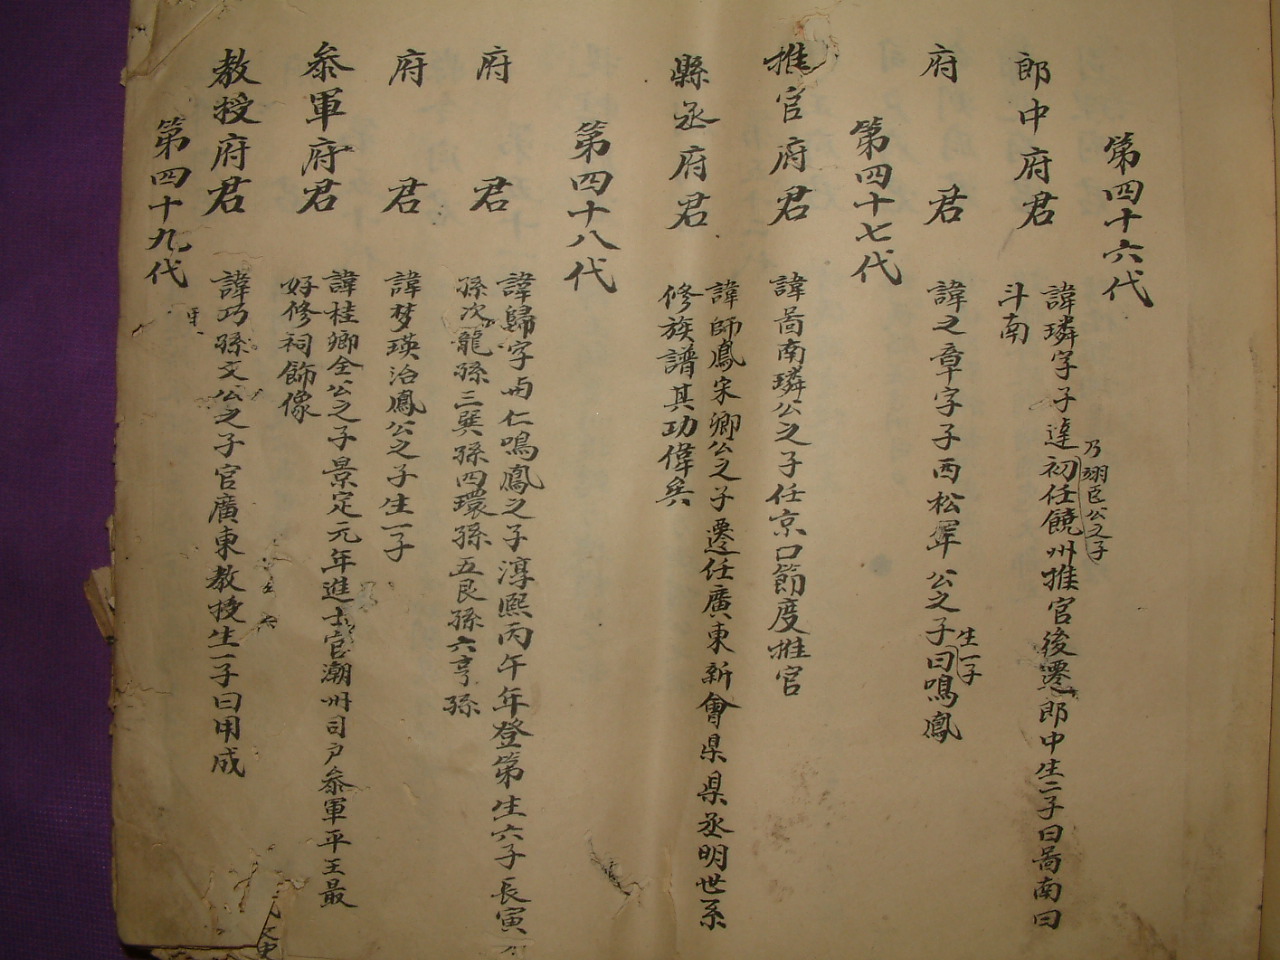 第四十六代
郎中府君
乃翊臣公之子
諱璘字子達初任饒州推官後遷郎中生二子曰啚南曰
斗南
府君
諱之章字子西松年公之子曰鳴鳳
生一子
第四十七代
推官府君
諱啚南璘公之子任京口節度推官
縣丞府君
諱師鳳宋卿公之子遷任廣東新會県県丞明世系
修族譜其功偉矣
第四十八代
府君
諱歸字与仁鳴鳳之子淳熙丙午年登第生六子長寅
孫次龍孫三巽孫四環孫五艮孫六亨孫
府君
諱梦瑛治鳳公之子生一子
参軍府君
諱桂卿全公之子景定元年進士官潮州司户参軍平王最
好修祠飾像
教授府君
諱巧孫文公之子官廣東教授生一子曰用成
第四十九代